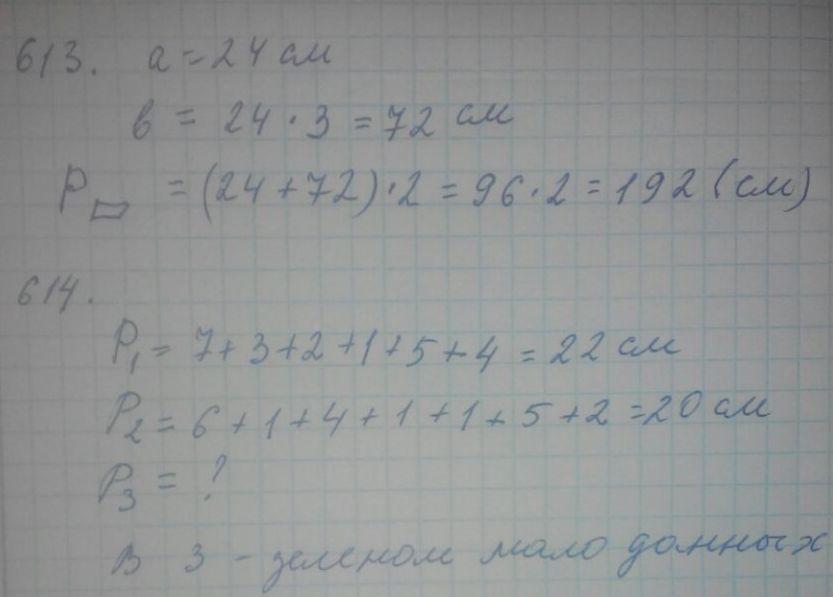 613. a = 24 см
в = 24 · 3 = 72 см
P▱ = (24 + 72) · 2 = 96 · 2 = 192 (см)
614.
P₁ = 7 + 3 + 2 + 1 + 5 + 4 = 22 см
P₂ = 6 + 1 + 4 + 1 + 1 + 5 + 2 = 20 см
P₃ = ?
В 3 - зеленом мало данных